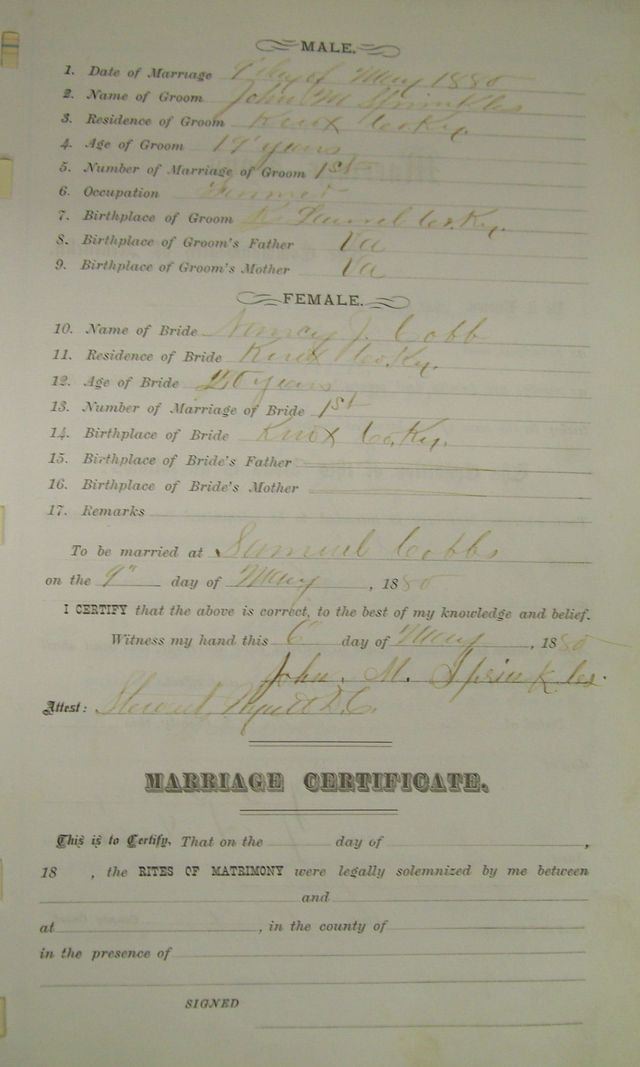 MALE.
1. Date of Marriage 9 day of May 1880
2. Name of Groom John M Sprinkles
3. Residence of Groom Knox Co. Ky.
4. Age of Groom 19 years
5. Number of Marriage of Groom 1st
6. Occupation Farmer
7. Birthplace of Groom Laurel Co. Ky.
8. Birthplace of Groom's Father Va
9. Birthplace of Groom's Mother Va
FEMALE.
10. Name of Bride Nancy J. Cobb
11. Residence of Bride Knox Co. Ky.
12. Age of Bride 20 years
13. Number of Marriage of Bride 1st
14. Birthplace of Bride Knox Co. Ky.
15. Birthplace of Bride's Father
16. Birthplace of Bride's Mother
17. Remarks
To be married at Samuel Cobbs
on the 9" day of May, 1880
I CERTIFY that the above is correct, to the best of my knowledge and belief.
Witness my hand this 6" day of May, 1880
John. M. Sprinkles.
Attest: D.C.
MARRIAGE CERTIFICATE.
This is to Certify, That on the day of ,
18 , the RITES OF MATRIMONY were legally solemnized by me between
and
at , in the county of
in the presence of
SIGNED